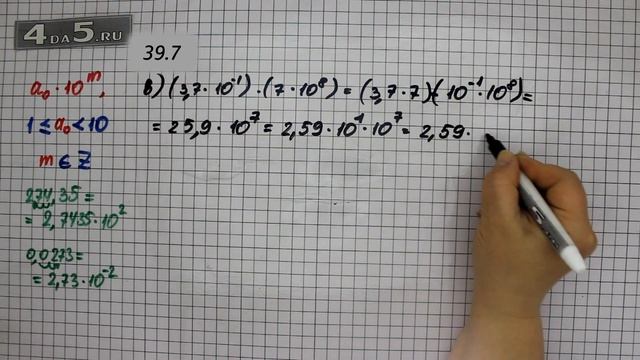 4DA5.RU
39.7
a₀ · 10ᵐ,
1 ≤ a₀ < 10
m ∈ Z
274,35 =
= 2,7435 · 10²
0,0273 =
= 2,73 · 10⁻²
в) (3,7 · 10⁻¹) · (7 · 10⁸) = (3,7 · 7)(10⁻¹ · 10⁸) =
= 25,9 · 10⁷ = 2,59 · 10¹ · 10⁷ = 2,59 ·